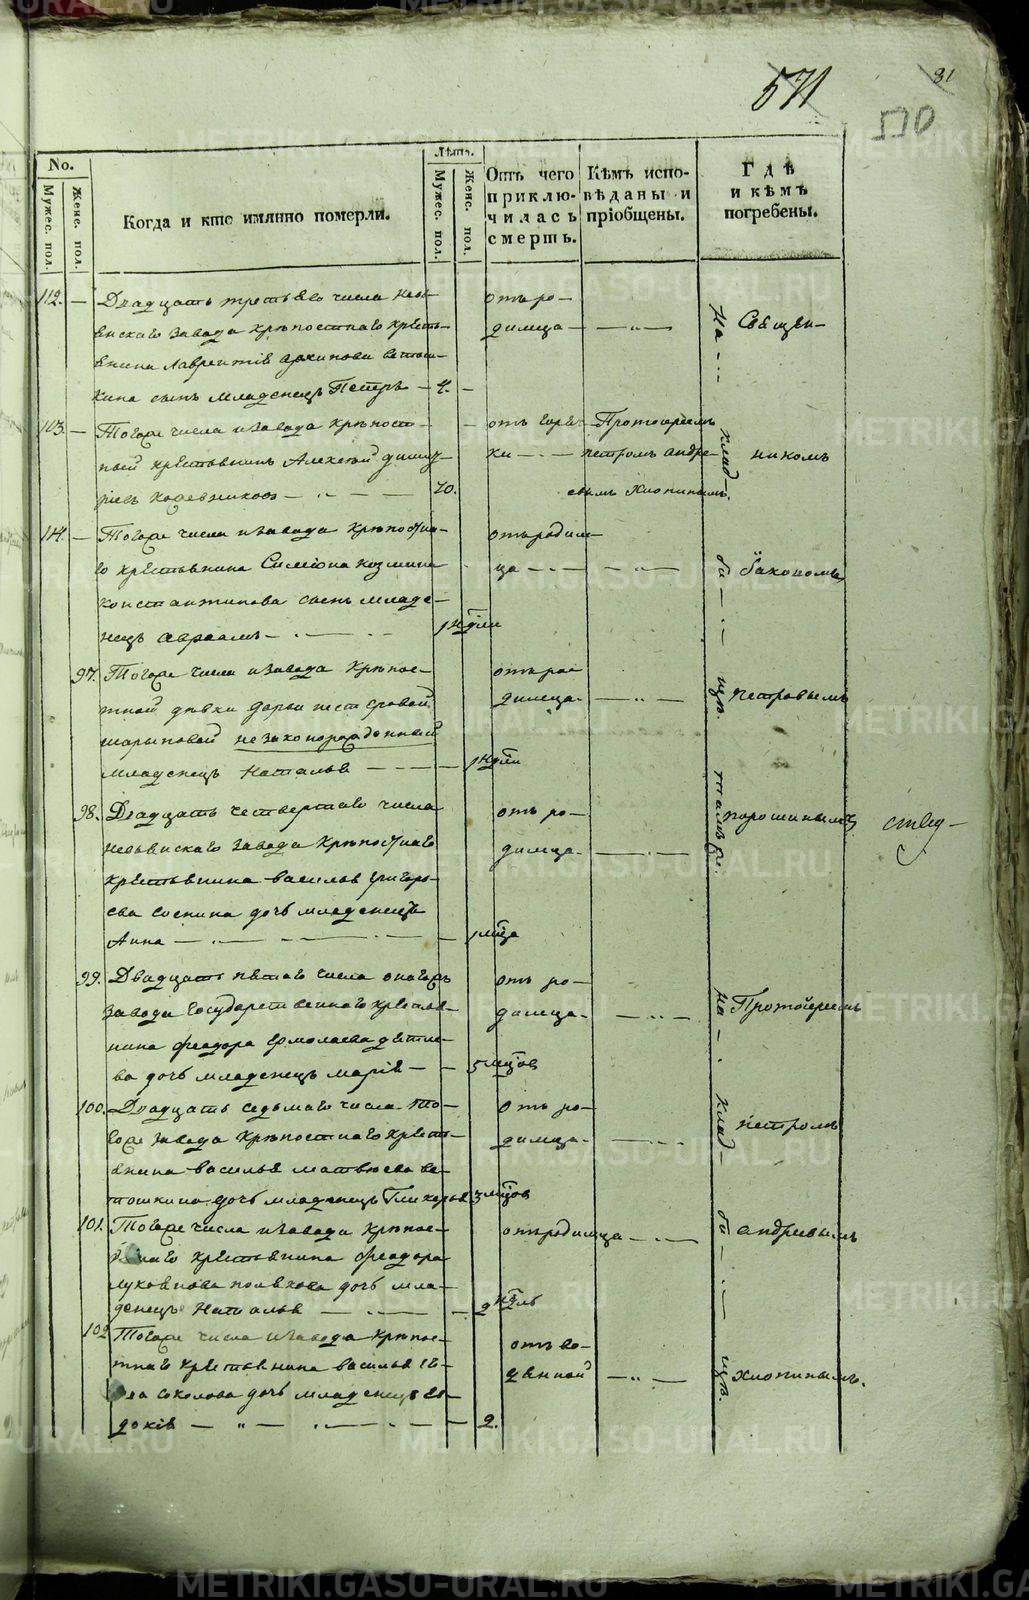 571
81
570
No.
Мужес. пол.
Женс. пол.
Когда и кто имянно померли.
Лѣта.
Мужес. пол.
Женс. пол.
Отъ чего приклю-чилась смерть.
Кѣмъ испо-вѣданы и пріобщены.
Гдѣ и кѣмъ погребены.
112. — Двадцать третьяго числа Невь-
янскаго завода крѣпостнаго кресть-
янина Лаврентія Архипова Ветош-
кина сынъ младенецъ Петръ — 4. —
отъ ро-
димца — — „ —
113. — Тогоже числа и завода крѣпост-
ный крестьянинъ Алексѣй Димит-
ріевъ Кожевниковъ — „ — — 70.
отъ горяч-
ки — „ —
Протоіереемъ
Петромъ Андре-
евымъ Хлопинымъ.
114. — Тогоже числа и завода крѣпостна-
го крестьянина Симіона Козмина
Константинова сынъ младе-
нецъ Авраамъ — „ — 1 нѣдли
отъ родим-
ца — „ — — „ —
97. Тогоже числа и завода крѣпос-
тной дѣвки Дарьи Нестеровой
Шарыповой незаконорожденный
младенецъ Наталья — — — 1 нѣдли
отъ ро-
димца. — „ —
98. Двадцать четвертаго числа
Невьянскаго завода крѣпостнаго
крестьянина Василья Григорь-
ева Соснина дочь младенецъ
Анна — „ — — „ — — 1 мца
отъ ро-
димца. — „ —
99. Двадцать пятаго числа онагожъ
завода государственнаго крестья-
нина Феодора Ермолаева Дѣтле-
ва дочь младенецъ Марія — — 5 мцовъ
отъ ро-
димца. — „ —
100. Двадцать седьмаго числа то-
гоже завода крѣпостнаго кресть-
янина Василья Матвѣева Ве-
тошкина дочь младенецъ Гликерья 3 мцовъ
отъ ро-
димца. — „ —
101. Тогоже числа и завода крѣпос-
тнаго крестьянина Феодора
Луковнова дочь мла-
денецъ Наталья — „ — — 2 нѣдль
отъ родимца — „ —
102. Тогоже числа и завода крѣпос-
тнаго крестьянина Василья
Соколова дочь младенецъ Ев-
докія — „ — „ — — 2.
отъ во-
дянной — „ —
На — клад-би-щѣ.
Священ-
никомъ
Іаковомъ
Петровымъ
Порошинымъ
На — клад-би-щѣ.
Протоіереемъ
Петромъ
Андреевымъ
Хлопинымъ.